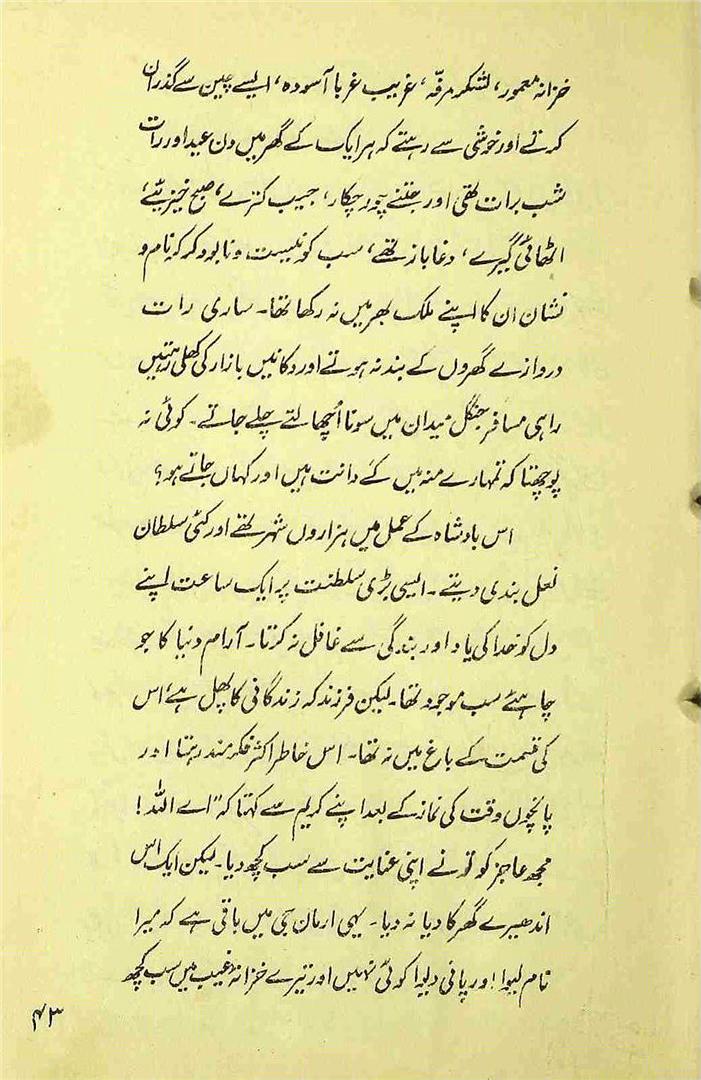 خزانہ معمور، لشکر مرفّہ، غریب غربا آسودہ، ایسے چین سے گذران
کرتے اور خوشی سے رہتے کہ ہر ایک کے گھر میں دن عید اور رات
شب برات تھی اور جتنے چور چکار، جیب کترے، صبح خیزیئے،
اٹھائی گیرے، دغاباز تھے، سب کو نیست و نابود کر کر نام و
نشان ان کا اپنے ملک بھر میں نہ رکھا تھا۔ ساری رات
دروازے گھروں کے بند نہ ہوتے اور دکانیں بازار کی کھلی رہتیں
راہی مسافر جنگل میدان میں سونا اُچھالتے چلے جاتے۔ کوئی نہ
پوچھتا کہ تمہارے منہ میں کَے دانت ہیں اور کہاں جاتے ہو؟
اس بادشاہ کے عمل میں ہزاروں شہر تھے اور کئی سلطان
نعل بندی دیتے۔ ایسی بڑی سلطنت پر ایک ساعت اپنے
دل کو خدا کی یاد اور بندگی سے غافل نہ کرتا۔ آرام دنیا کا جو
چاہئے سب موجود تھا۔ لیکن فرزند کہ زندگانی کا پھل ہے اُس
کی قسمت کے باغ میں نہ تھا۔ اس خاطر اکثر فکر مند رہتا اور
پانچوں وقت کی نماز کے بعد اپنے کریم سے کہتا کہ "اے اللہ!
مجھ عاجز کو تو نے اپنی عنایت سے سب کچھ دیا۔ لیکن ایک اس
اندھیرے گھر کا دیا نہ دیا۔ یہی ارمان جی میں باقی ہے کہ میرا
نام لیوا اور پانی دیوا کوئی نہیں اور تیرے خزانۂ غیب میں سب کچھ
۴۳